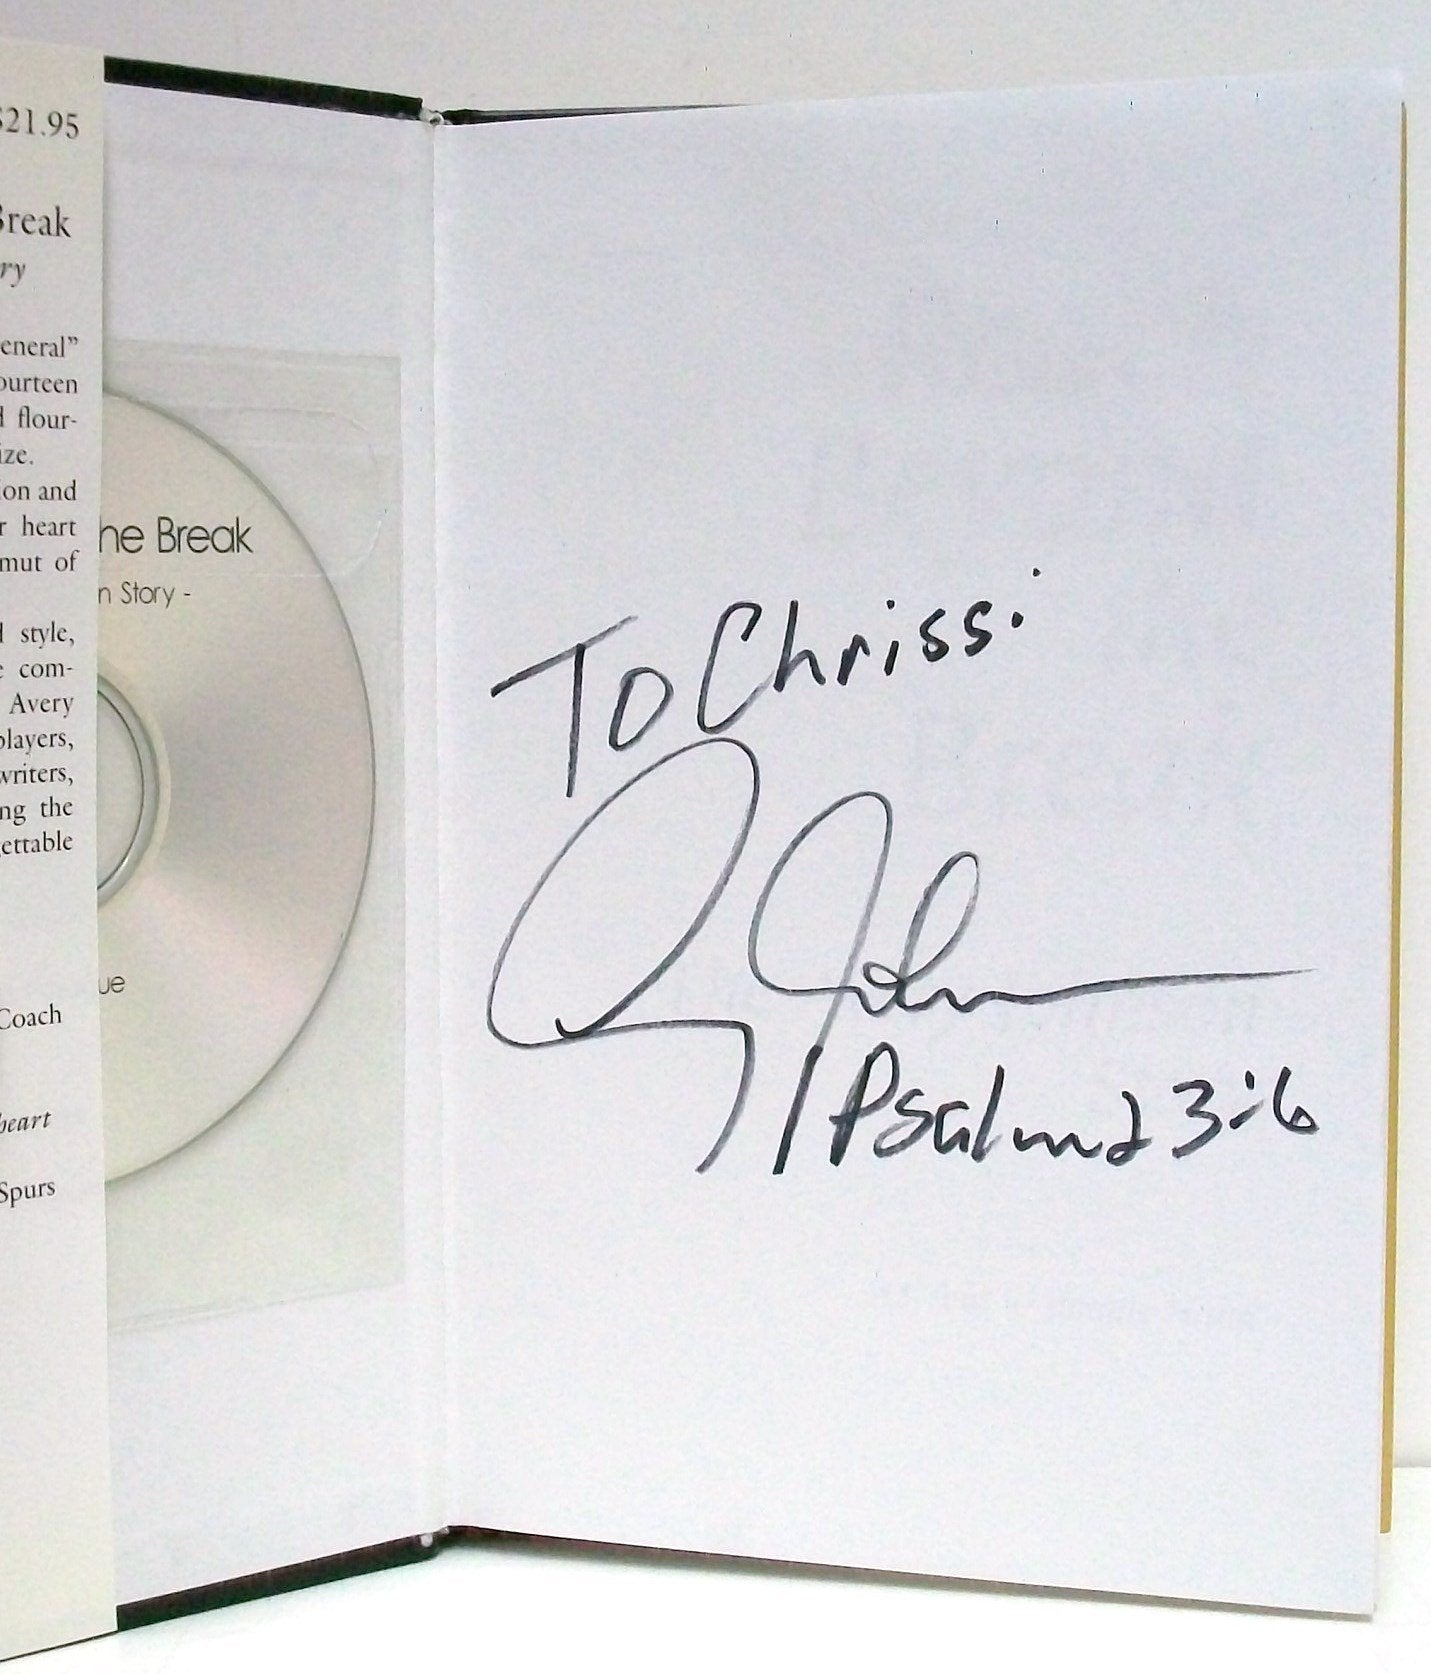 $21.95
Break
ry
eneral”
ourteen
d flour-
ize.
ion and
r heart
mut of
d style,
e com-
Avery
players,
writers,
ng the
gettable
Coach
heart
Spurs
he Break
n Story -
ue
To Chrissi
Psalm 23:6